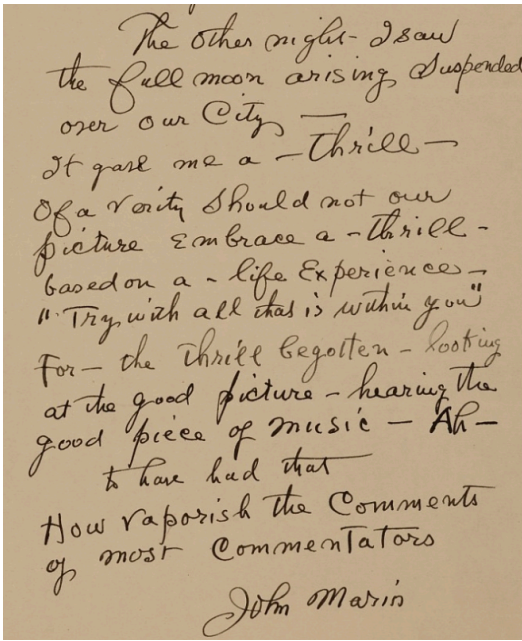 The other night - I saw
the full moon arising Suspended
over our City —
It gave me a - thrill -
Of a Verity Should not our
picture Embrace a - thrill -
based on a - life Experience -
"Try with all that is within you"
For - the thrill begotten - looking
at the good picture - hearing the
good piece of music - Ah -
to have had that
How vaporish the Comments
of most Commentators
John Marin